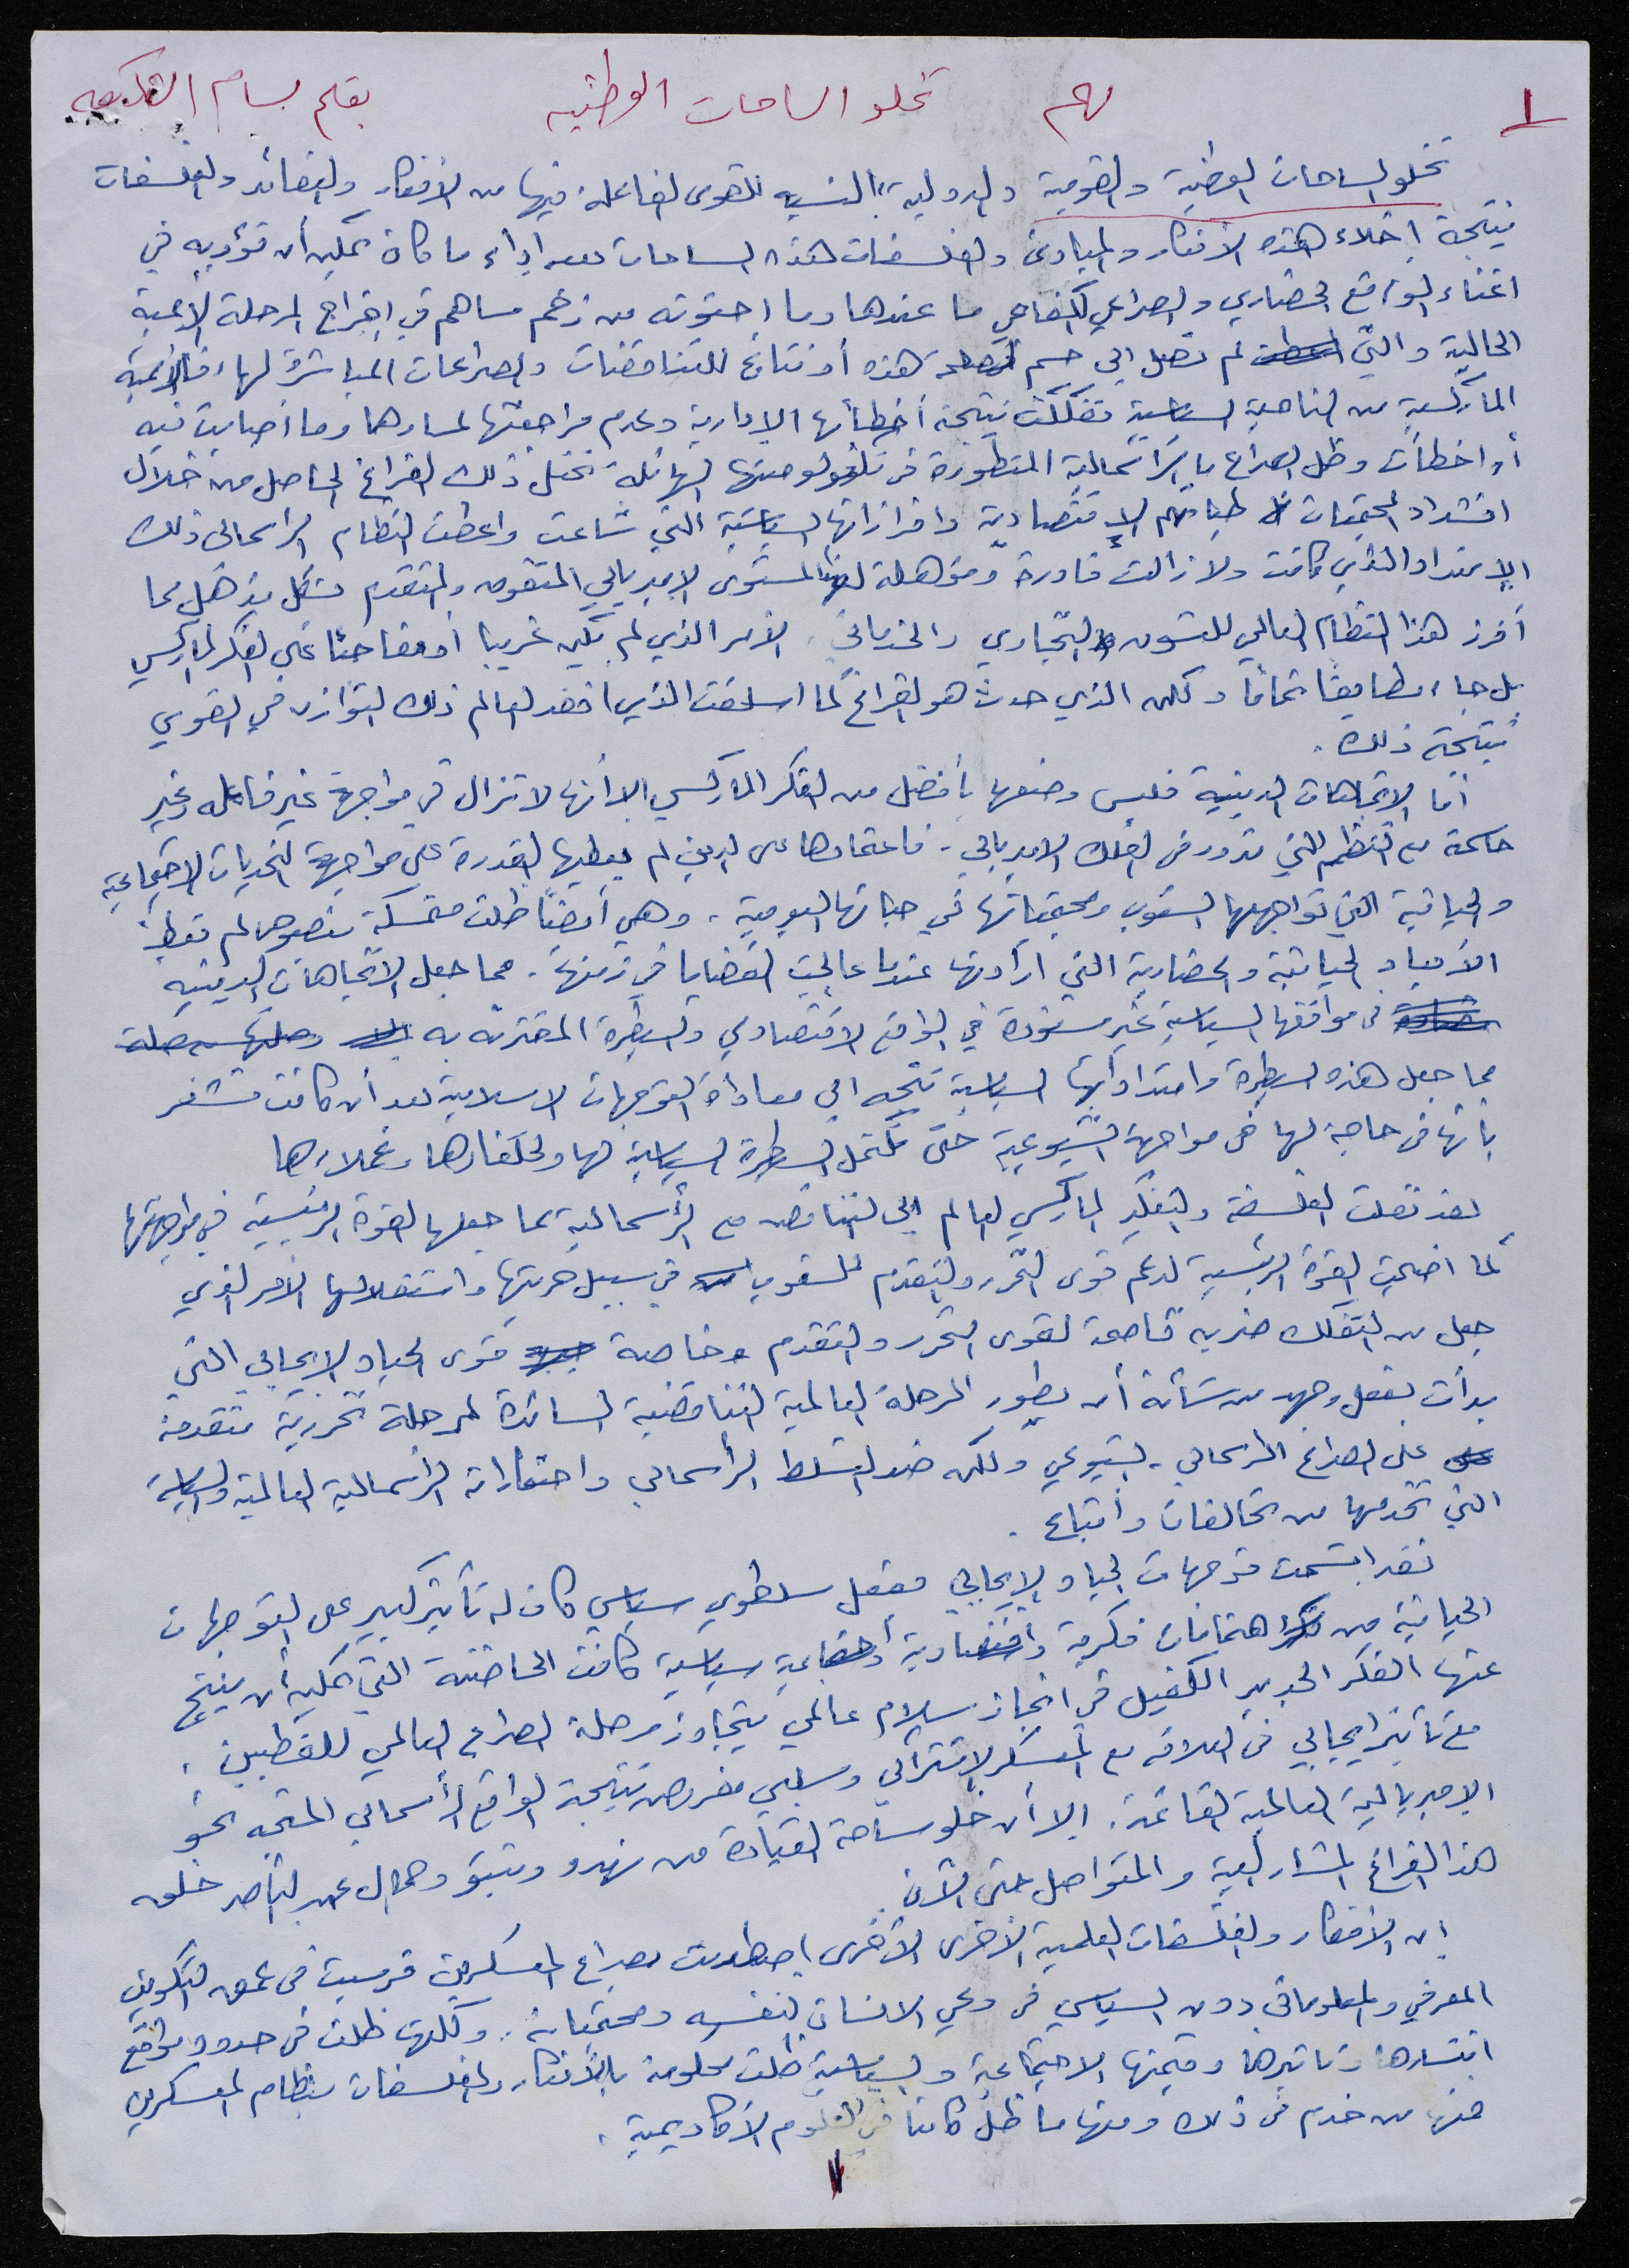 ١
تخلو الساحات الوطنية
بقلم بسام الشكعه
تخلو الساحات الوطنية والقومية والدولية بالنسبه للقوى الفاعلة فيها من الافكار والعقائد والفلسفات
نتيجة اخلاء هذه الافكار والمبادئ والفلسفات هذه الساحات بعد اداء ما كان يمكن أن تؤديه في
اغناء الواقع الحضاري والصراعي الكفاحي ما عندها وما احتوته من زخم ساهم في اخراج المرحلة الأممية
الحالية والتي لم تصل الى حسم هذه أو نتائج للتناقضات والصراعات المباشرة لها، فالأممية
الماركسية من الناحية السياسية تفككت نتيجة أخطائها الادارية وعدم مراجعتها لمسارها وما أصابت فيه
أو اخطأت وظل الصراع بالرأسمالية المتطورة في تكنولوجيتها الهائلة تحتل ذلك الفراغ الحاصل من خلال
انشداد المجتمعات لحياتهم الإقتصادية وافرازاتها السياسية التي شاعت واعطت النظام الرأسمالي ذلك
الإمتداد الذي كانت ولا زالت قادرة ومؤهلة لهذا المستوى الإمبريالي المتفوق والمتقدم بشكل يذهل مما
أفرز هذا النظام العالمي للسوق التجاري والخدماتي، الأمر الذي لم يكن غريبا أو مفاجئا على الفكر الماركسي
بل جاء مطابقًا تمامًا ولكن الذي حدث هو الفراغ كما اسلفت الذي افقد العالم ذلك التوازن في القوى
نتيجة ذلك.
أمّا الاتجاهات الدينية فليس وضعها بأفضل من الفكر الماركسي الا أنها لا تزال في مواجهة غير فاعله وغير
حاسمة مع النظم التي تدور في الفلك الامبريالي. فاعتمادها على الدين لم يعطيها القدرة على مواجهة التحديات الاجتماعية
والحياتية التي تواجهها الشعوب ومجتمعاتها في حياتها اليومية. وهي أيضًا ظلت متمسكة بنصوص لم تعط
الأبعاد الحياتية والحضارية التي ارادتها عندما عالجت القضايا في زمنها. مما جعل الاتجاهات الدينيه
في مواقفها السياسية غير مسنودة في الواقع الاقتصادي والسيطرة المقترنه به
مما جعل هذه السيطرة وامتداداتها السياسية تتجه الى معاداة التوجهات الاسلامية بعد أن كانت تشعر
بأنها في حاجة لها في مواجهة الشيوعية حتى تكتمل السيطرة السياسية لها ولحلفاءها وعملاءها
لقد نقلت الفلسفة والتفكير الماركسي العالم الى التناقض مع الرأسمالية مما جعلها القوة الرئيسية في مواجهتها
كما اضحت القوة الرئيسية لدعم قوى التحرر والتقدم للشعوب في سبيل حريتها واستقلالها الأمر الذي
جعل من التفكك ضربة قاصمة لقوى التحرر والتقدم وخاصة قوى الحياد الايجابي التي
بدأت بفعل وجهد من شأنه أن يطور المرحلة العالمية التناقضية السائدة لمرحلة تحررية متقدمة
على الصراع الرأسمالي - الشيوعي ولكن ضد التسلط الرأسمالي واحتكاراته الرأسمالية العالمية والسياسية
التي تخدمها من تحالفات وأتباع.
لقد ابتسمت توجهات الحياد الايجابي بفعل سلطوي سياسي كان له تأثير كبير على التوجهات
الحياتية من اهتمامات فكرية واقتصادية واجتماعية سياسية كانت الحاضنة التي يمكن أن ينتج
عنها الفكر الجديد الكفيل في انجاز سلام عالمي يتجاوز مرحلة الصراع العالمي للقطبين.
مع تأثير ايجابي في العلاقه مع المعسكر الاشتراكي وسلبي مفروض نتيجة الواقع الرأسمالي المتجه نحو
الامبريالية العالمية القائمة. الا أن خلو ساحة القيادة من نهرو وتيتو وجمال عبد الناصر خلق
هذا الفراغ المشار اليه والمتواصل حتى الآن.
إن الأفكار والفلسفات العلمية الأخرى الأخرى اصطدمت بصراع المعسكرين فرسبت في عمق التكوين
المعرفي والمعلوماتي دون السياسي في وعي الانسان لنفسه ومجتمعاته. ولكنها ظلت في حدود واقع
انتشارها وتاثيرها وقيمتها الاجتماعية والسياسية ظلت محكومة بالأفكار والفلسفات بنظام المعسكرين
منها من خدم في ذلك ومنها ما ظل كامنا في العلوم الأكاديمية.